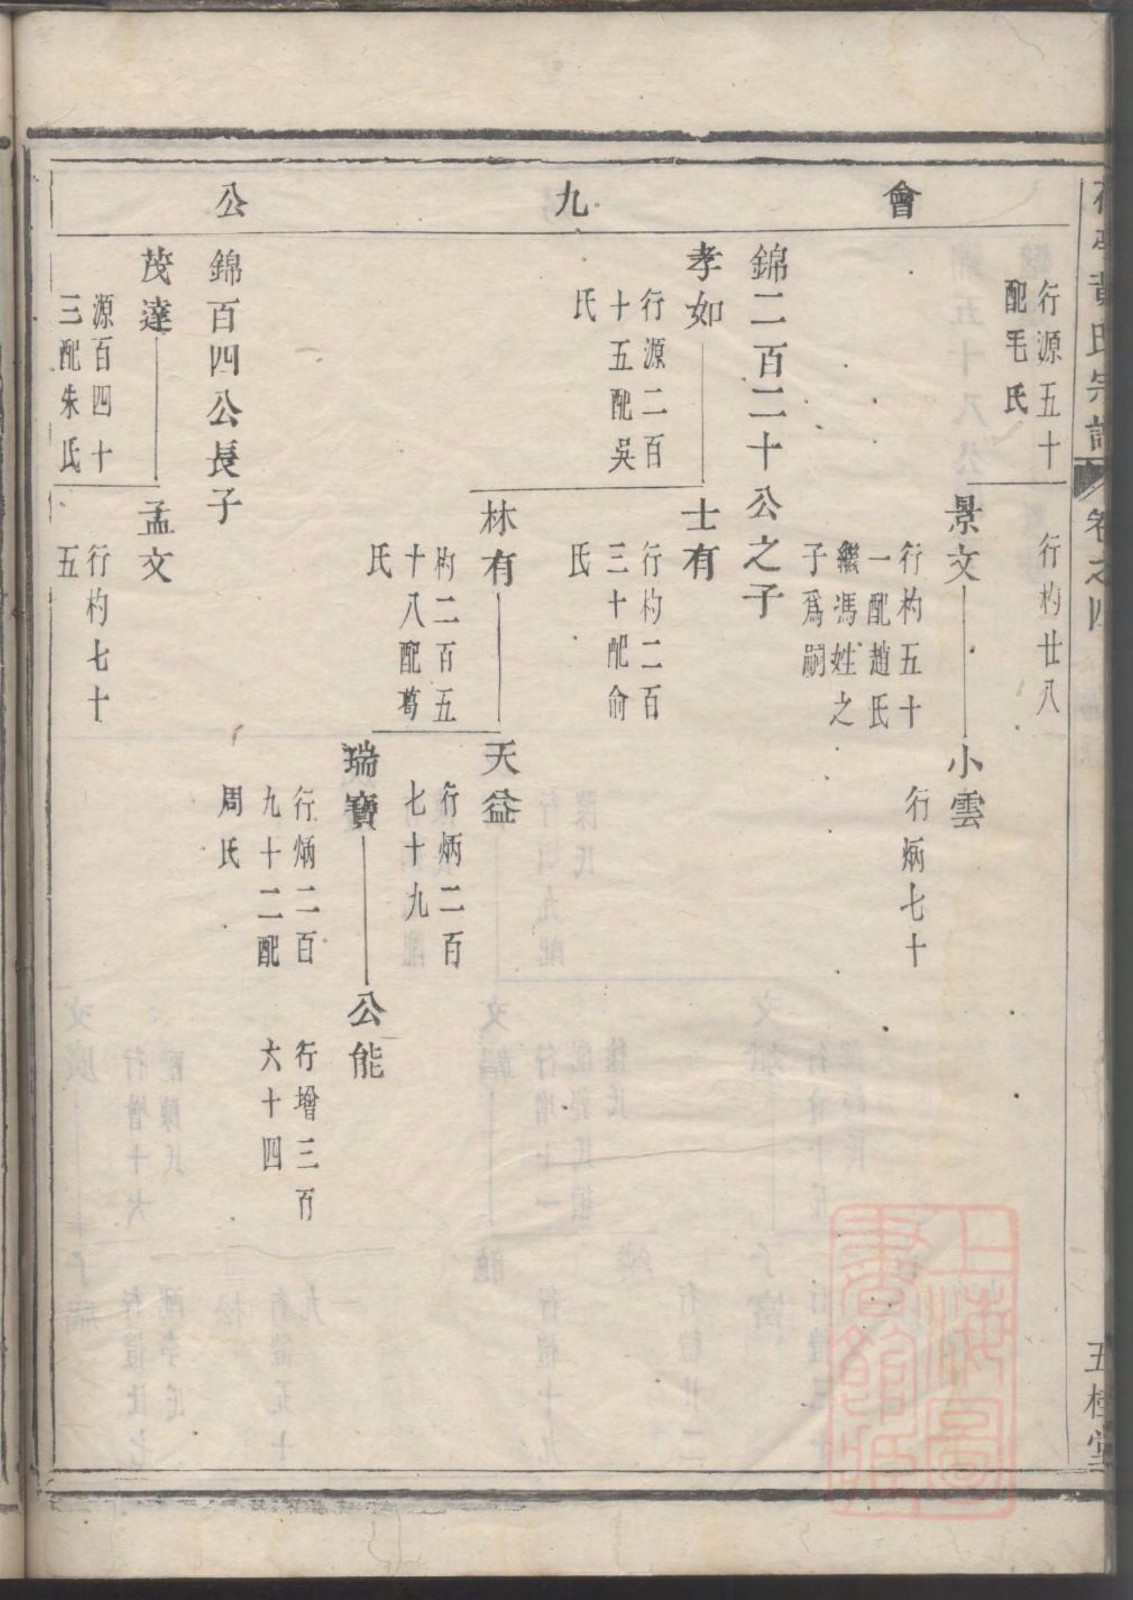 黃氏宗譜
卷之四
五桂堂
會九公
行源五十
配毛氏
行杓廿八
景文
行杓五十
一配趙氏
繼馮姓之
子爲嗣
小雲
行炳七十
錦二百二十公之子
孝如
行源二百
十五配吳
氏
士有
行杓二百
三十配俞
氏
林有
杓二百五
十八配葛
氏
天益
行炳二百
七十九
瑞寶
行炳二百
九十二配
周氏
公能
行增三百
六十四
錦百四公長子
茂達
源百四十
三配朱氏
孟文
行杓七十
五
上海圖
書館藏